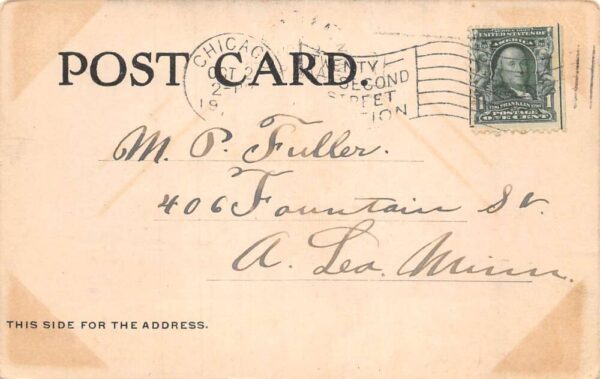 POST CARD.
CHICAGO
OCT 2
19
TWENTY
SECOND
STREET
TION
UNITED STATES OF
AMERICA
1 FRANKLIN 1
POSTAGE
ONE CENT
M. P. Fuller.
406 Fountain St.
A. Lea. Minn.
THIS SIDE FOR THE ADDRESS.